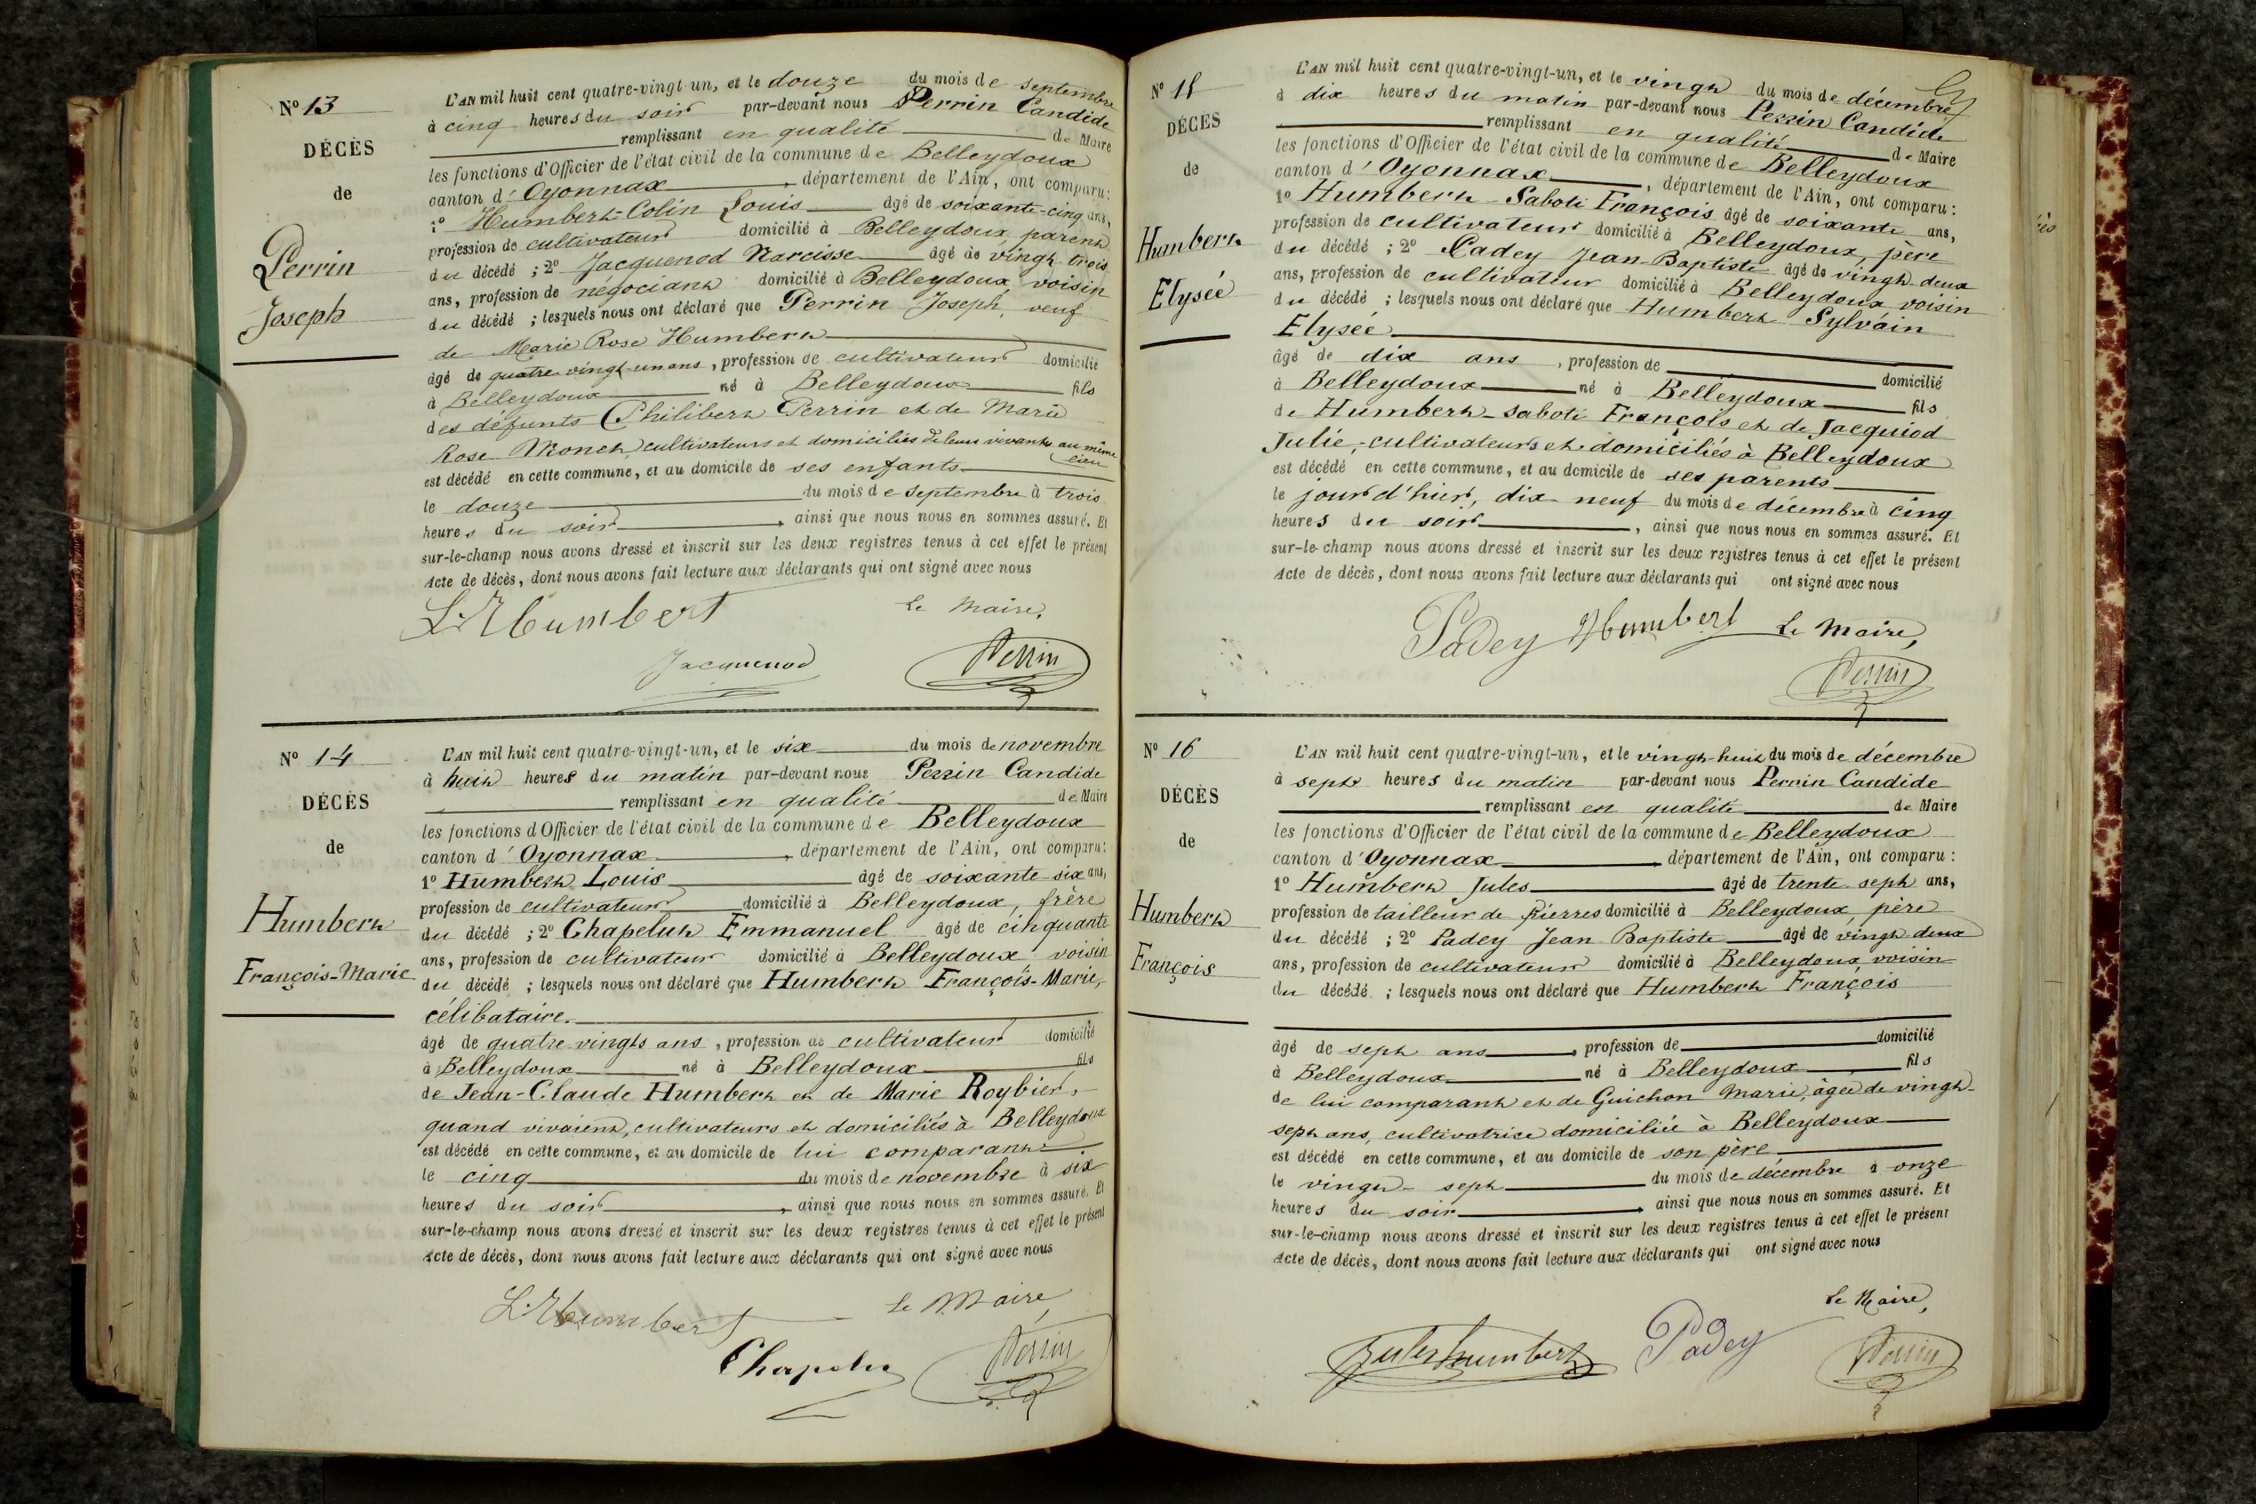 N° 13
DÉCÈS
de
Perrin
Joseph
L'AN mil huit cent quatre-vingt un, et le douze du mois de septembre
à cinq heures du soir par-devant nous Perrin Candide
remplissant en qualité de Maire
les fonctions d'Officier de l'état civil de la commune de Belleydoux
canton d'Oyonnax, département de l'Ain, ont comparu:
1° Humbert-Colin Louis âgé de soixante-cinq ans,
profession de cultivateur domicilié à Belleydoux parent
du décédé ; 2° Jacquenod Narcisse âgé de vingt-trois
ans, profession de négociant domicilié à Belleydoux voisin
du décédé ; lesquels nous ont déclaré que Perrin Joseph, veuf
de Marie Rose Humbert
âgé de quatre vingt-un ans, profession de cultivateur domicilié
à Belleydoux né à Belleydoux fils
des défunts Philibert Perrin et de Marie
Rose Monet, cultivateurs et domiciliés de leur vivant au même
lieu
est décédé en cette commune, et au domicile de ses enfants
le douze du mois de septembre à trois
heures du soir, ainsi que nous nous en sommes assuré. Et
sur-le-champ nous avons dressé et inscrit sur les deux registres tenus à cet effet le présent
Acte de décès, dont nous avons fait lecture aux déclarants qui ont signé avec nous
L. Humbert Le Maire,
Jacquenod Perrin
N° 14
DÉCÈS
de
Humbert
François-Marie
L'AN mil huit cent quatre-vingt-un, et le six du mois de novembre
à huit heures du matin par-devant nous Perrin Candide
remplissant en qualité de Maire
les fonctions d'Officier de l'état civil de la commune de Belleydoux
canton d'Oyonnax, département de l'Ain, ont comparu:
1° Humbert Louis âgé de soixante-six ans,
profession de cultivateur domicilié à Belleydoux, frère
du décédé ; 2° Chapelut Emmanuel âgé de cinquante
ans, profession de cultivateur domicilié à Belleydoux voisin
du décédé ; lesquels nous ont déclaré que Humbert François-Marie,
célibataire.
âgé de quatre-vingts ans, profession de cultivateur domicilié
à Belleydoux né à Belleydoux fils
de Jean-Claude Humbert et de Marie Roybier,
quand vivaient, cultivateurs et domiciliés à Belleydoux
est décédé en cette commune, et au domicile de lui comparant
le cinq du mois de novembre à six
heures du soir, ainsi que nous nous en sommes assuré. Et
sur-le-champ nous avons dressé et inscrit sur les deux registres tenus à cet effet le présent
Acte de décès, dont nous avons fait lecture aux déclarants qui ont signé avec nous
L. Humbert Le Maire,
Chapelu Perrin
N° 15
DÉCÈS
de
Humbert
Elysée
L'AN mil huit cent quatre-vingt-un, et le vingt du mois de décembre
à dix heures du matin par-devant nous Perrin Candide
remplissant en qualité de Maire
les fonctions d'Officier de l'état civil de la commune de Belleydoux
canton d'Oyonnax, département de l'Ain, ont comparu:
1° Humbert-Saboti François âgé de soixante ans,
profession de cultivateur domicilié à Belleydoux, père
du décédé ; 2° Padey Jean-Baptiste âgé de vingt-deux
ans, profession de cultivateur domicilié à Belleydoux voisin
du décédé ; lesquels nous ont déclaré que Humbert Sylvain
Elysée
âgé de dix ans, profession de domicilié
à Belleydoux né à Belleydoux fils
de Humbert-Saboti François et de Jacquiod
Julie, cultivateurs et domiciliés à Belleydoux
est décédé en cette commune, et au domicile de ses parents
le jour d'hier, dix-neuf du mois de décembre à cinq
heures du soir, ainsi que nous nous en sommes assuré. Et
sur-le-champ nous avons dressé et inscrit sur les deux registres tenus à cet effet le présent
Acte de décès, dont nous avons fait lecture aux déclarants qui ont signé avec nous
Padey Humbert Le Maire,
Perrin
N° 16
DÉCÈS
de
Humbert
François
L'AN mil huit cent quatre-vingt-un, et le vingt-huit du mois de décembre
à sept heures du matin par-devant nous Perrin Candide
remplissant en qualité de Maire
les fonctions d'Officier de l'état civil de la commune de Belleydoux
canton d'Oyonnax, département de l'Ain, ont comparu:
1° Humbert Jules âgé de trente-sept ans,
profession de tailleur de pierres domicilié à Belleydoux père
du décédé ; 2° Padey Jean Baptiste âgé de vingt-deux
ans, profession de cultivateur domicilié à Belleydoux voisin
du décédé ; lesquels nous ont déclaré que Humbert François
âgé de sept ans, profession de domicilié
à Belleydoux né à Belleydoux fils
de lui comparant et de Guichon Marie, âgée de vingt-
sept ans, cultivatrice domiciliée à Belleydoux
est décédé en cette commune, et au domicile de son père
le vingt-sept du mois de décembre à onze
heures du soir, ainsi que nous nous en sommes assuré. Et
sur-le-champ nous avons dressé et inscrit sur les deux registres tenus à cet effet le présent
Acte de décès, dont nous avons fait lecture aux déclarants qui ont signé avec nous
Le Maire,
Jules humbert Padey Perrin